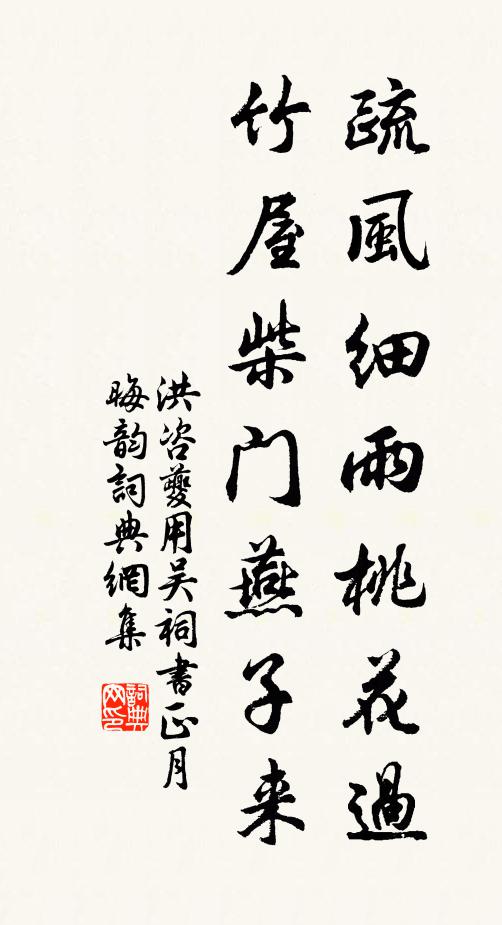 疏風細雨桃花過
竹屋柴门燕子来
洪咨夔用吴祠書正月
晦韵詞典網集
詞典网印